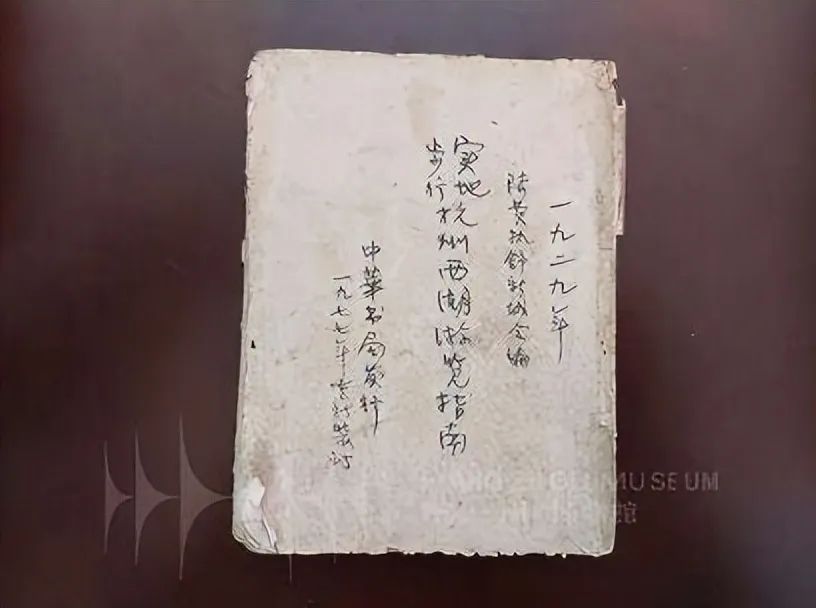 一九二九年
陆费执舒新城合编
实地
步行杭州西湖游览指南
中華书局发行
一九七七年重新装订
MUSEUM
館